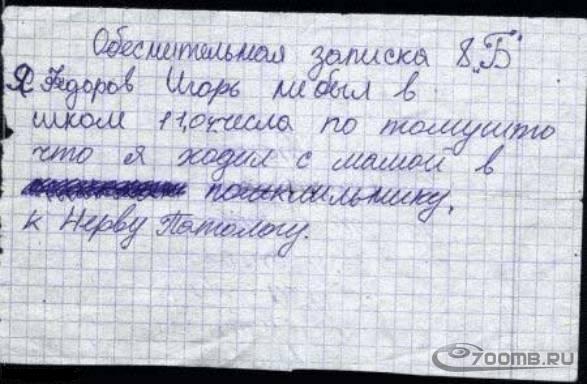 Обеснительная записка 8 „Б"
Я Федоров Игорь небыл в
школ 11,01числа по томушто
что я ходил с мамой в
поликлильнику,
к Нерву Патологу.
700MB.RU